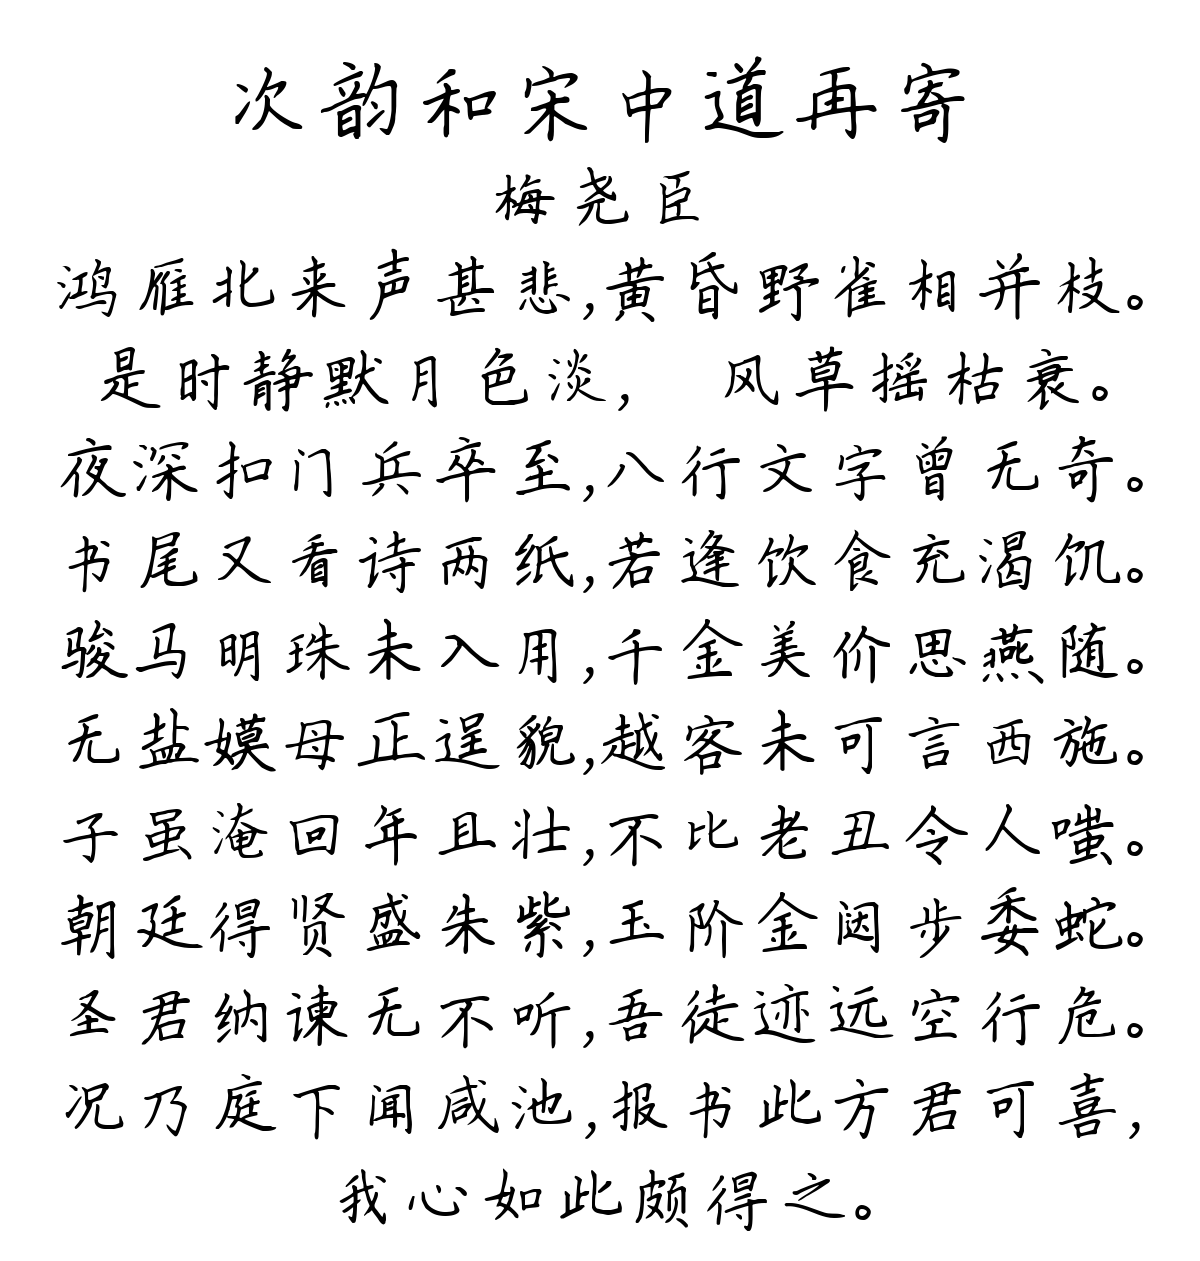 次韵和宋中道再寄
梅尧臣
鸿雁北来声甚悲,黄昏野雀相并枝。
是时静默月色淡, 风草摇枯衰。
夜深扣门兵卒至,八行文字曾无奇。
书尾又看诗两纸,若逢饮食充渴饥。
骏马明珠未入用,千金美价思燕随。
无盐嫫母正逞貌,越客未可言西施。
子虽淹回年且壮,不比老丑令人嗤。
朝廷得贤盛朱紫,玉阶金闼步委蛇。
圣君纳谏无不听,吾徒迹远空行危。
况乃庭下闻咸池,报书此方君可喜,
我心如此颇得之。